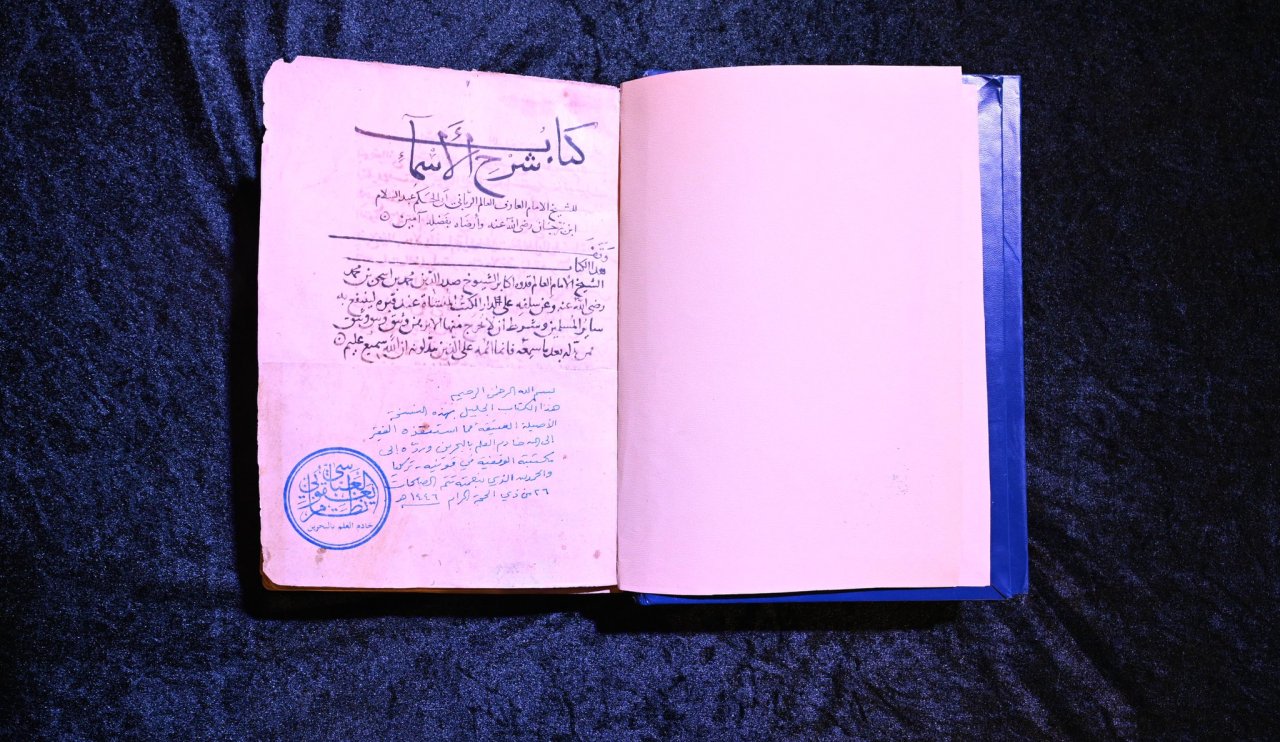 كتاب
شرح الأسماء
للشيخ الامام العارف العالم الرباني ابى الحكم عبد السلام
ابن برجان رضى الله عنه وأرضاه بفضله آمين
وقف
هذا الكتاب
الشيخ الامام العالم قدوة اكابر الشيوخ صدر الدين محمد بن اسحق بن محمد
رضى الله عنه وعن سلفه على دار الكتب المنشاة عند قبره لينتفع به
ساير المسلمين وشرط أن لا يخرج منها الا برهن وثيق
فمن بدله بعد ما سمعه فانما اثمه على الذين يبدلونه ان الله سميع عليم
بسم الله الرحمن الرحيم
هذا الكتاب الجليل بهذه النسخة
الأصيلة العتيقة مما استنقذه الفقير
إلى الله خادم العلم بالبحرين وردّه إلى
مكتبته الوقفية في قونية - تركيا
والحمد لله الذي بنعمته تتم الصالحات
٢٦ من ذي الحجة الحرام ١٤٤٦ هـ
نظام يعقوبي العباسي
خادم العلم بالبحرين